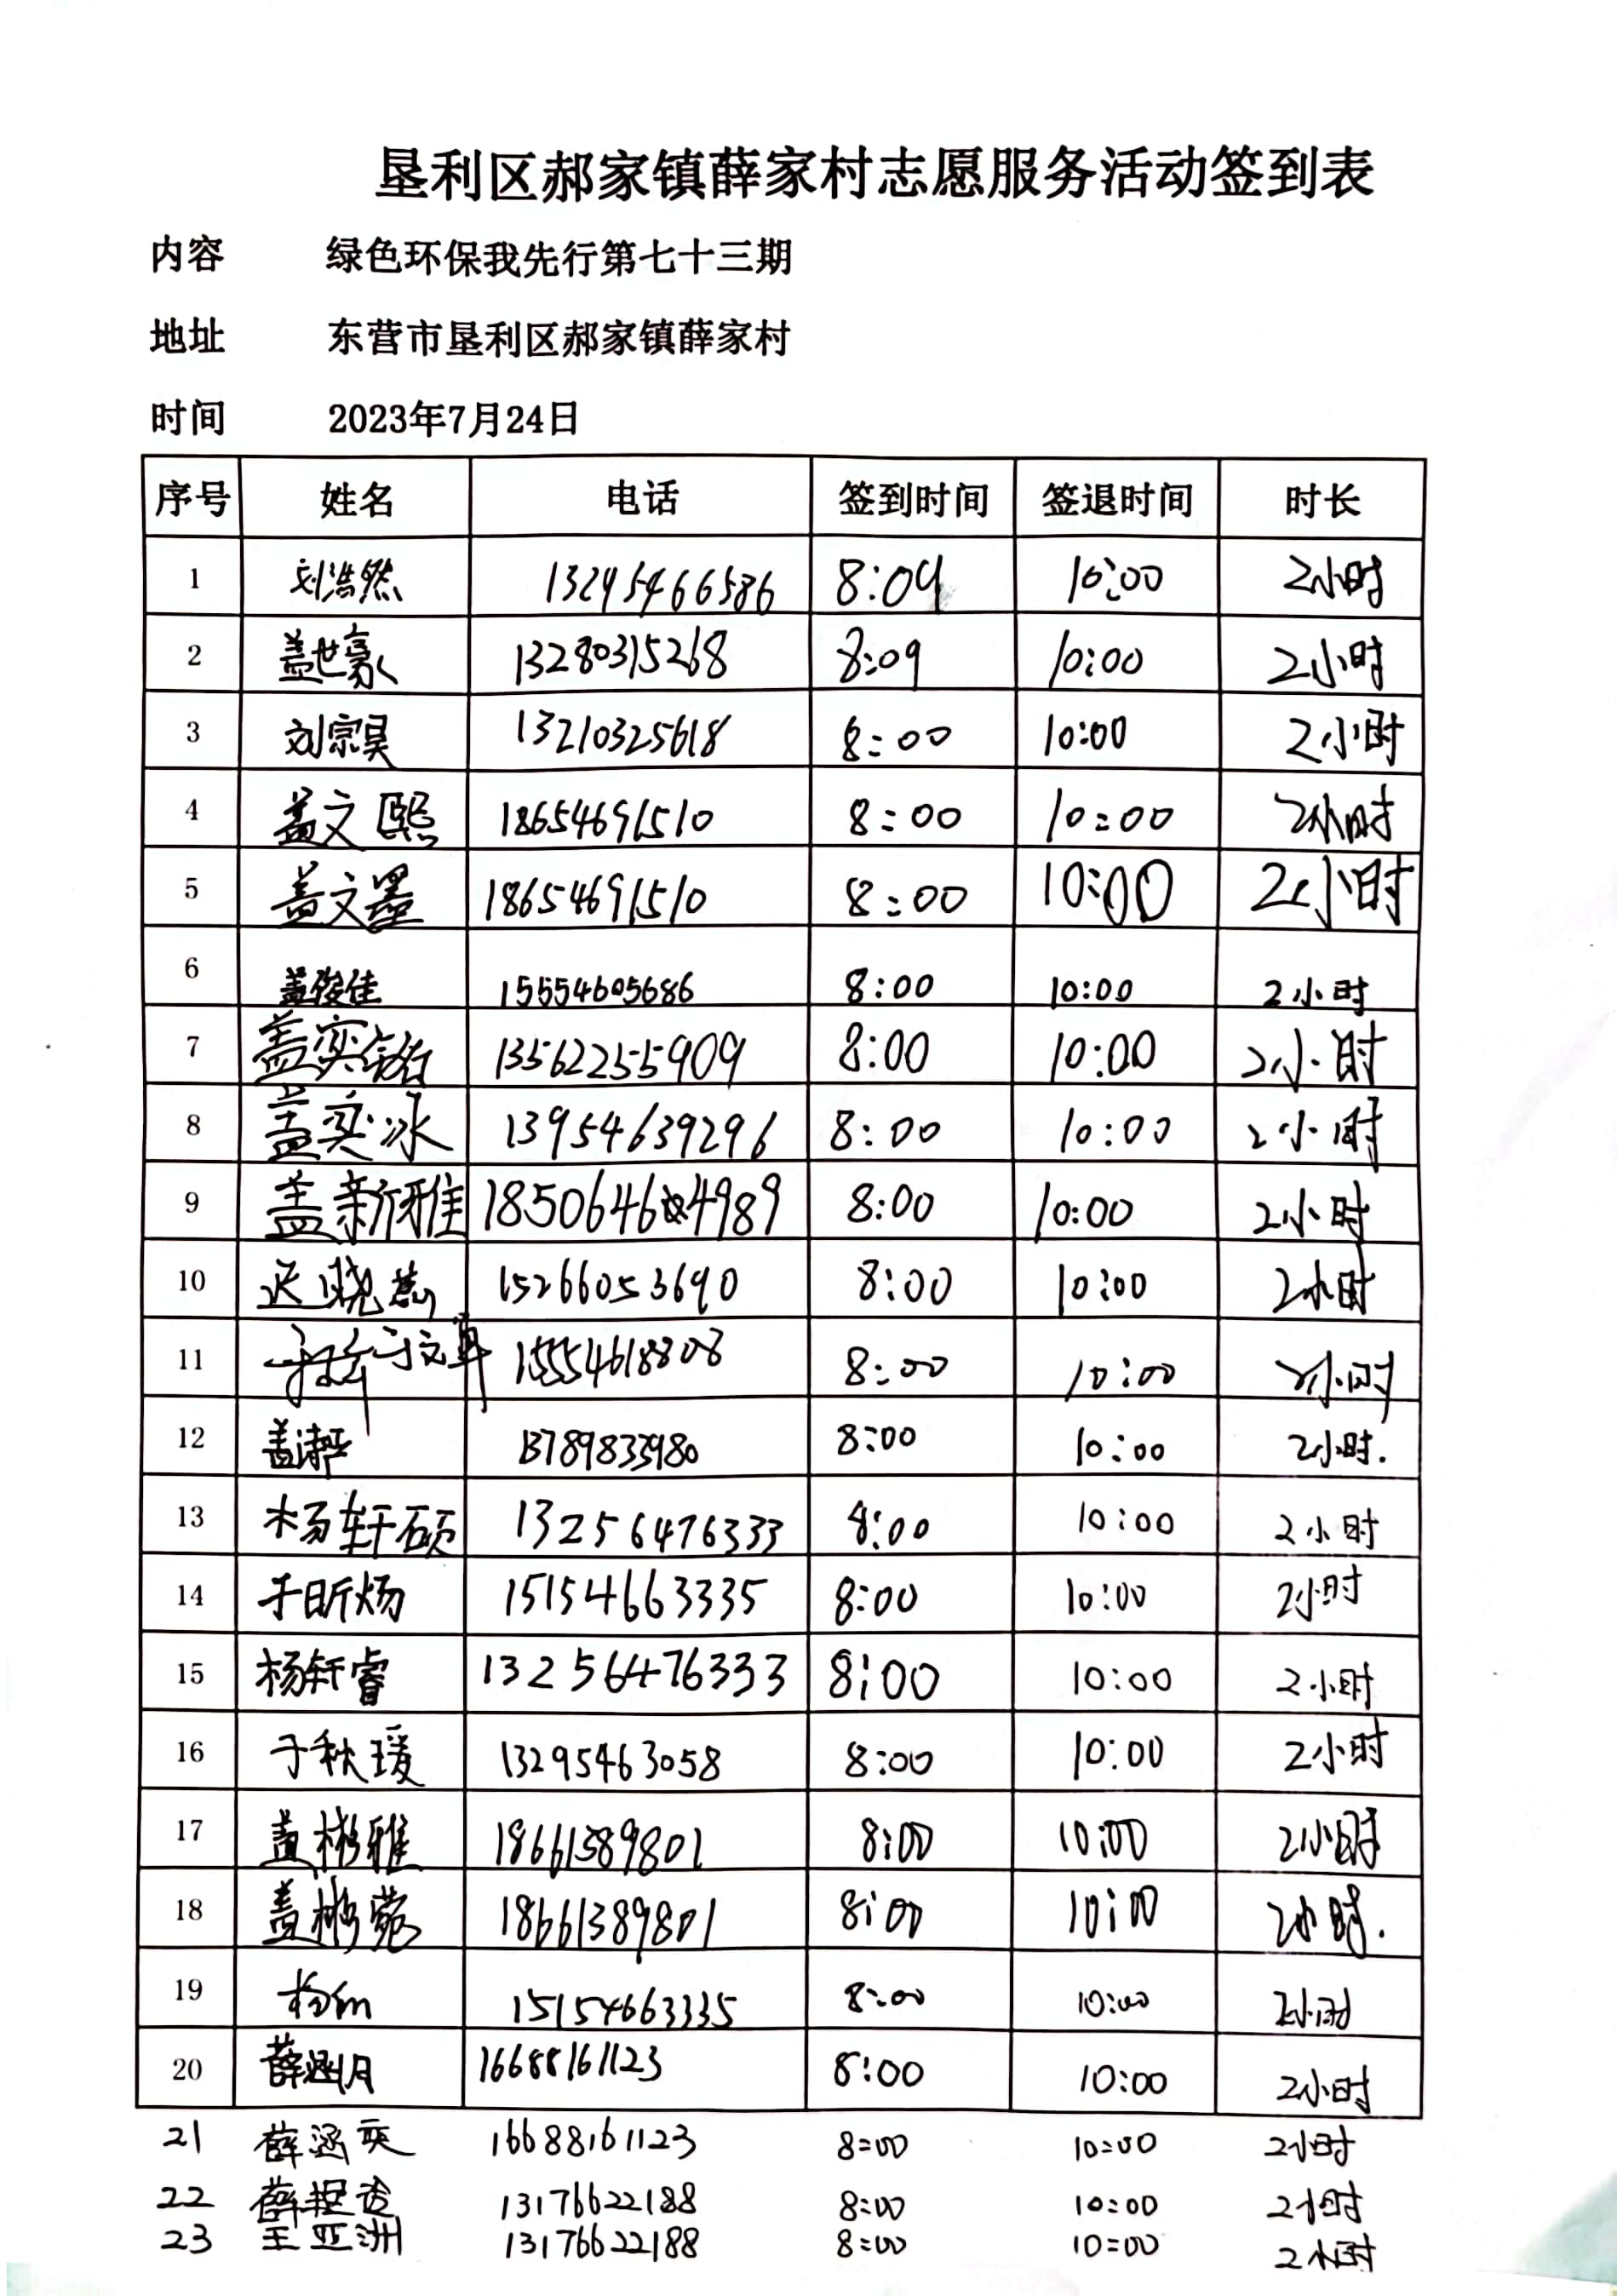 垦利区郝家镇薛家村志愿服务活动签到表
内容 绿色环保我先行第七十三期
地址 东营市垦利区郝家镇薛家村
时间 2023年7月24日
序号 姓名 电话 签到时间 签退时间 时长
1 刘浩然 13295466586 8:09 10:00 2小时
2 盖世豪 13280315268 8:09 10:00 2小时
3 刘宗昊 13210325618 8:00 10:00 2小时
4 盖文熙 18654691510 8:00 10:00 2小时
5 盖文墨 18654691510 8:00 10:00 2小时
6 盖俊佳 15554605686 8:00 10:00 2小时
7 盖奕铭 13562255909 8:00 10:00 2小时
8 盖奕冰 13954639296 8:00 10:00 2小时
9 盖新雅 18506464989 8:00 10:00 2小时
10 迟晓燕 15266053690 8:00 10:00 2小时
11 于文卓 15554618808 8:00 10:00 2小时
12 盖 13789833980 8:00 10:00 2小时.
13 杨轩硕 13256476333 8:00 10:00 2小时
14 于昕炀 15154663335 8:00 10:00 2小时
15 杨轩睿 13256476333 8:00 10:00 2小时
16 于秋瑗 13295463058 8:00 10:00 2小时
17 盖彬雅 18661389801 8:00 10:00 2小时
18 盖彬菀 18661389801 8:00 10:00 2小时.
19 杨 15154663335 8:00 10:00 2小时
20 薛涵月 16688161123 8:00 10:00 2小时
21 薛涵奕 16688161123 8:00 10:00 2小时
22 薛 13176622188 8:00 10:00 2小时
23 王亚洲 13176622188 8:00 10:00 2小时